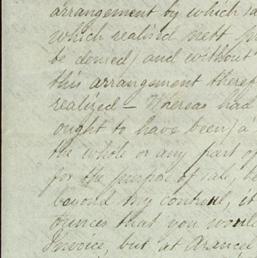 arrangement by which
which realised nett
be denied) and without
this arrangement
realized - Whereas had
ought to have been) a
the whole or any part of
for the purpose of sale, be
beyond my control, it
ounces that you would
Invoice, but at